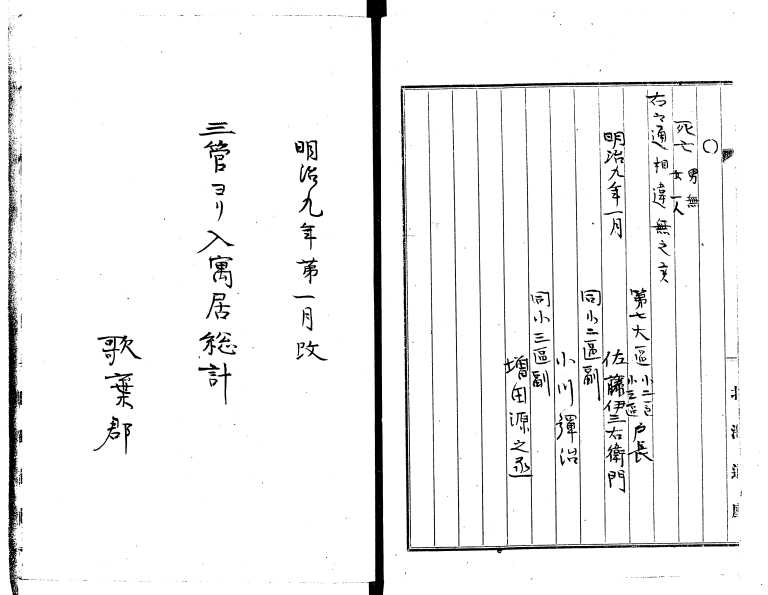 ○
死亡 男無
女一人
右之通相違無之候
明治九年一月
第七大區 小二區
小三區 戸長
佐藤伊三右衛門
同小二區副
小川彈治
同小三區副
増田源之丞
明治九年第一月改
三管ヨリ入寓居総計
歌棄郡